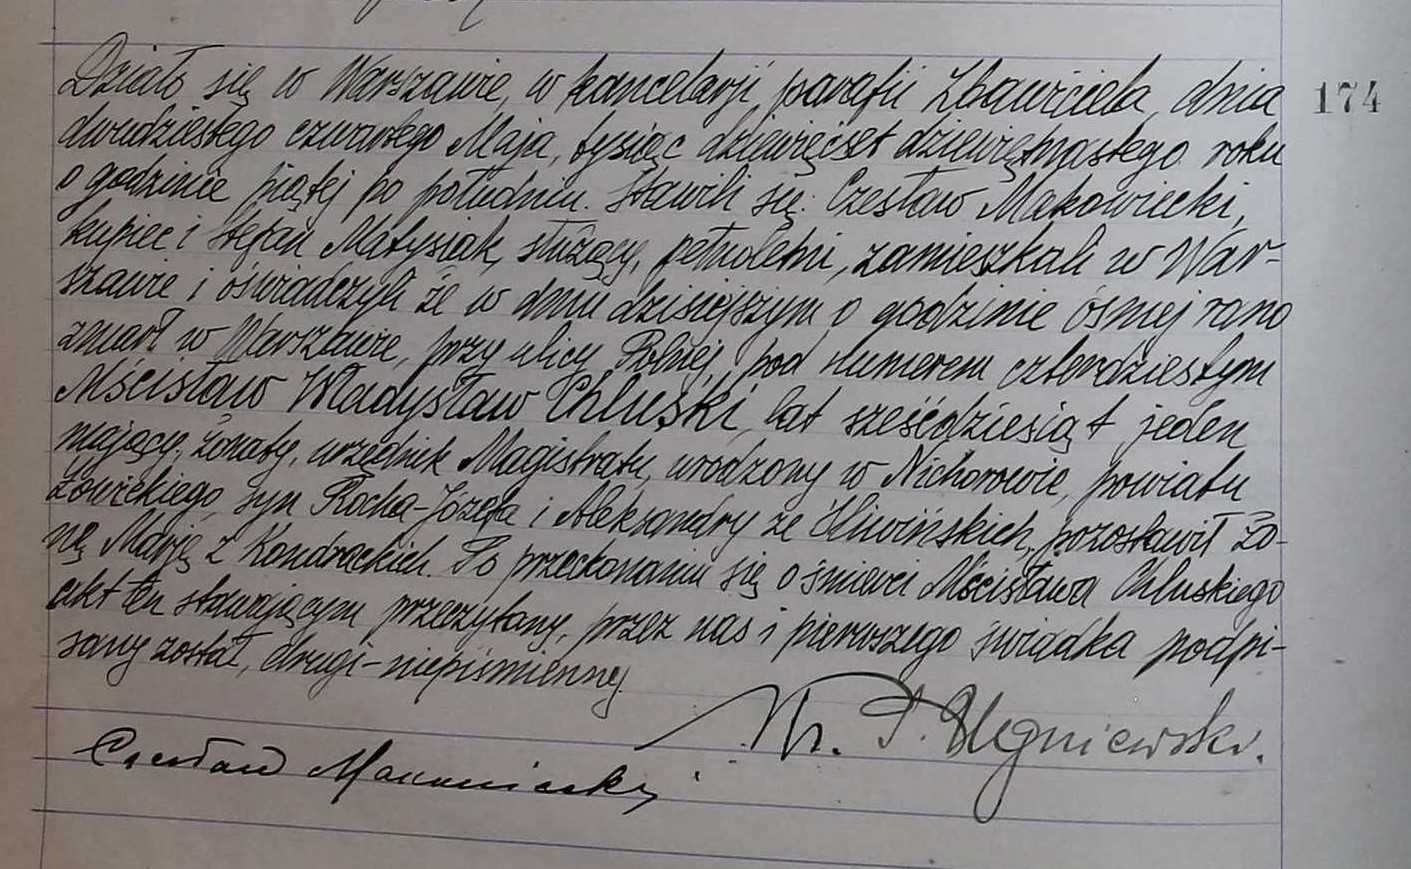 Działo się w Warszawie, w kancelarji parafii Zbawiciela, dnia
174
dwudziestego czwartego Maja, tysiąc dziewięćset dziewiętnastego roku
o godzinie piątej po południu. Stawili się: Czesław Makowiecki,
kupiec i Stefan Matysiak, służący, pełnoletni, zamieszkali w War-
szawie i oświadczyli że w dniu dzisiejszym o godzinie ósmej rano
zmarł w Warszawie, przy ulicy Polnej, pod numerem czterdziestym
Mścisław Władysław Chluski, lat sześćdziesiąt jeden
mający, żonaty, urzędnik Magistratu, urodzony w Nichorowie, powiatu
Łowickiego, syn Rocha-Józefa i Aleksandry ze Śliwińskich, pozostawił żo-
nę Marję z Kondrackich. Po przekonaniu się o śmierci Mścisława Chluskiego
akt ten stawającym przeczytany, przez nas i pierwszego świadka podpi-
sany został, drugi-niepiśmienny.
Czesław Makowiecki